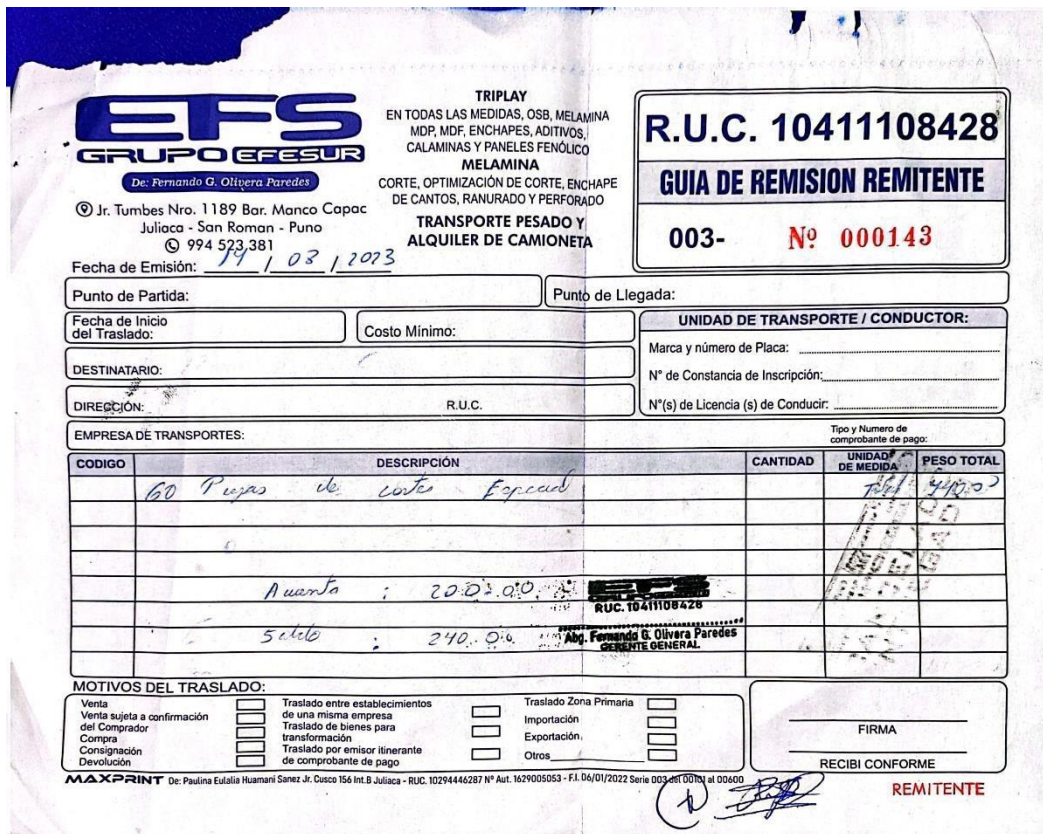 EFS
GRUPO EFESUR
De: Fernando G. Olivera Paredes
Jr. Tumbes Nro. 1189 Bar. Manco Capac
Juliaca - San Roman - Puno
994 523 381
TRIPLAY
EN TODAS LAS MEDIDAS, OSB, MELAMINA
MDP, MDF, ENCHAPES, ADITIVOS,
CALAMINAS Y PANELES FENÓLICO
MELAMINA
CORTE, OPTIMIZACIÓN DE CORTE, ENCHAPE
DE CANTOS, RANURADO Y PERFORADO
TRANSPORTE PESADO Y
ALQUILER DE CAMIONETA
R.U.C. 10411108428
GUIA DE REMISION REMITENTE
003- Nº 000143
Fecha de Emisión: 14 / 03 / 2023
Punto de Partida:
Punto de Llegada:
Fecha de Inicio
del Traslado:
Costo Mínimo:
UNIDAD DE TRANSPORTE / CONDUCTOR:
Marca y número de Placa:
N° de Constancia de Inscripción:
N°(s) de Licencia (s) de Conducir:
DESTINATARIO:
DIRECCIÓN: R.U.C.
EMPRESA DE TRANSPORTES:
Tipo y Numero de
comprobante de pago:
CODIGO DESCRIPCIÓN CANTIDAD UNIDAD DE MEDIDA PESO TOTAL
60 de Total 440.00
Acuenta : 200.00
EFS
RUC. 10411108428
Saldo : 240.00
Abg. Fernando G. Olivera Paredes
GERENTE GENERAL
MOTIVOS DEL TRASLADO:
Venta
Venta sujeta a confirmación
del Comprador
Compra
Consignación
Devolución
Traslado entre establecimientos
de una misma empresa
Traslado de bienes para
transformación
Traslado por emisor itinerante
de comprobante de pago
Traslado Zona Primaria
Importación
Exportación
Otros
FIRMA
RECIBI CONFORME
MAXPRINT De: Paulina Eulalia Huamani Sanez Jr. Cusco 156 Int.B Juliaca - RUC. 10294446287 Nº Aut. 1629005053 - F.I. 06/01/2022 Serie 003 del 00101 al 00600
REMITENTE